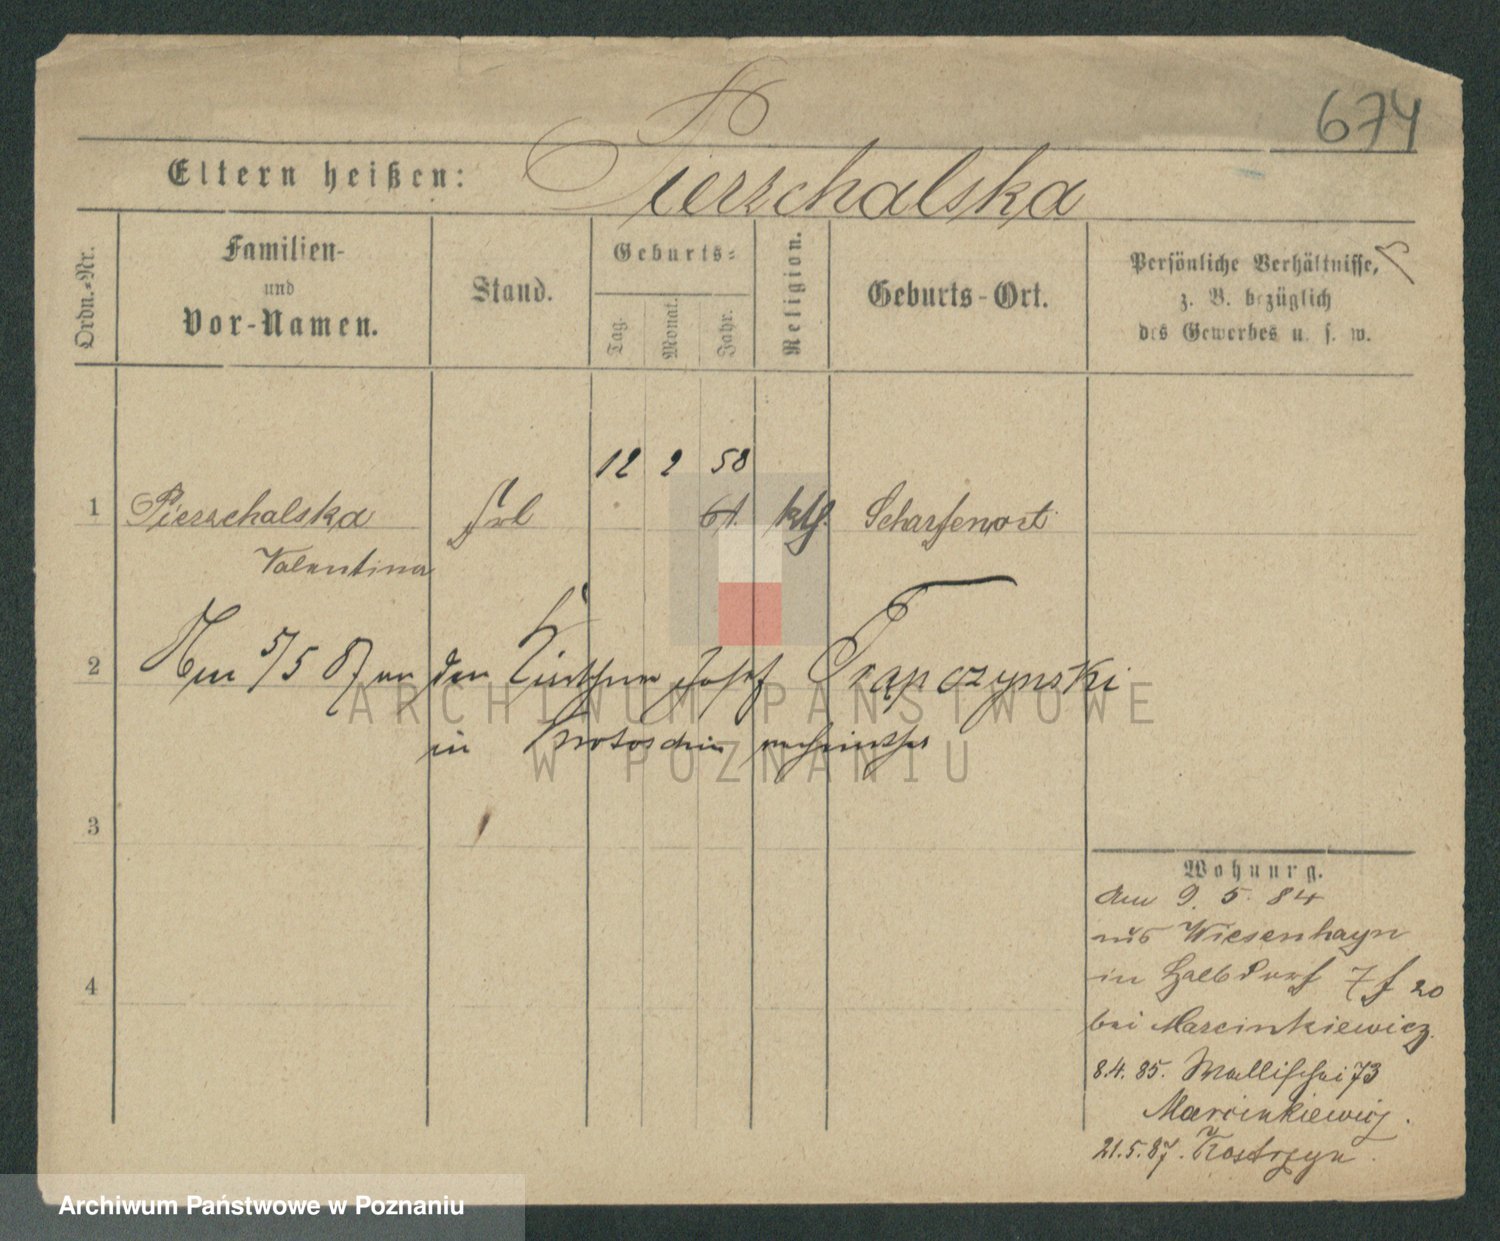 674
Eltern heißen: Pierzchalska
Ordn.-Nr.
Familien-
und
Vor-Namen.
Stand.
Geburts-
Tag.
Monat.
Jahr.
Religion.
Geburts-Ort.
Persönliche Verhältnisse,
z. B. bezüglich
des Gewerbes u. s. w.
12 2 58
1 Pierzchalska frl 61. kth. Scharfenort
Valentina
2 Am 5/5 87 an den Josef Trąpczynski
in Krotoschin verheirathet
3
4
Wohnung.
Am 9. 5. 84
aus Wiesenhayn
in Halbdorf 7 f 20
bei Marcinkiewicz.
8.4. 85. Wallischei 73
Marcinkiewicz.
21.5.87. Kostrzyn.
ARCHIWUM PAŃSTWOWE
W POZNANIU
Archiwum Państwowe w Poznaniu